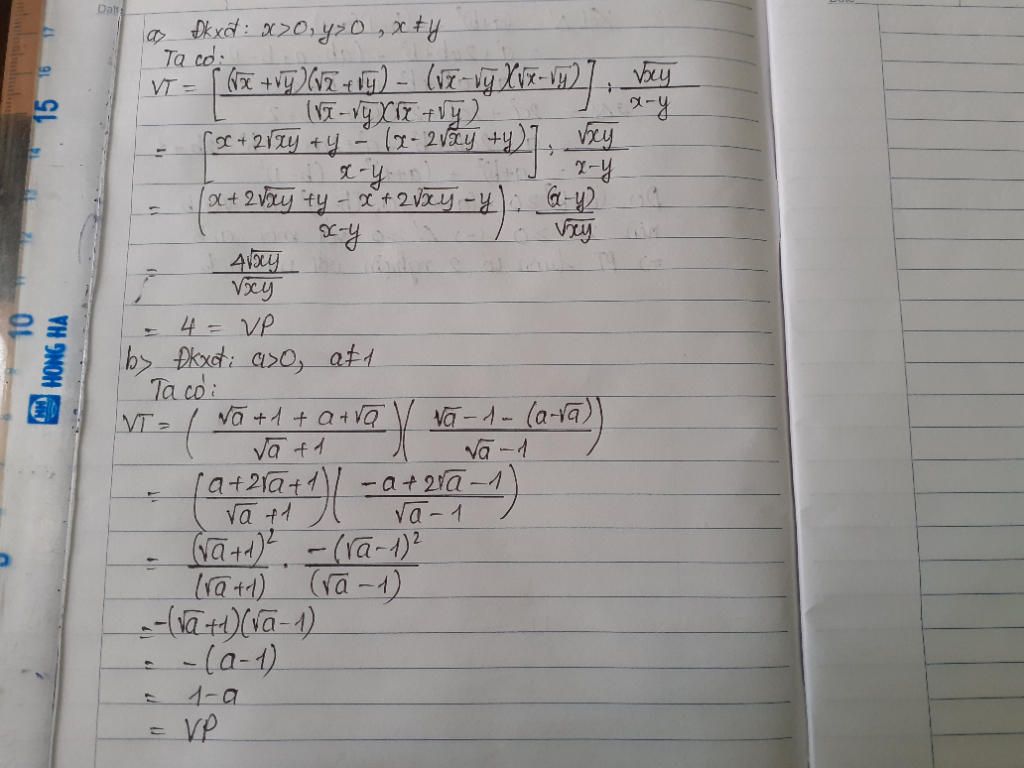 Date
Date
a> Đkxđ: x>0, y>0, x≠y
Ta có:
VT = [((√x+√y)(√x+√y) - (√x-√y)(√x-√y))/((√x-√y)(√x+√y))] : √xy/(x-y)
= [(x+2√xy+y - (x-2√xy+y))/(x-y)] : √xy/(x-y)
= ((x+2√xy+y-x+2√xy-y)/(x-y)) · (x-y)/√xy
= 4√xy/√xy
= 4 = VP
b> Đkxđ: a>0, a≠1
Ta có:
VT = ((√a+1+a+√a)/(√a+1))((√a-1-(a-√a))/(√a-1))
= ((a+2√a+1)/(√a+1))((-a+2√a-1)/(√a-1))
= (√a+1)²/(√a+1) · -(√a-1)²/(√a-1)
= -(√a+1)(√a-1)
= -(a-1)
= 1-a
= VP
17
16
15
14
13
12
11
10
HONG HA